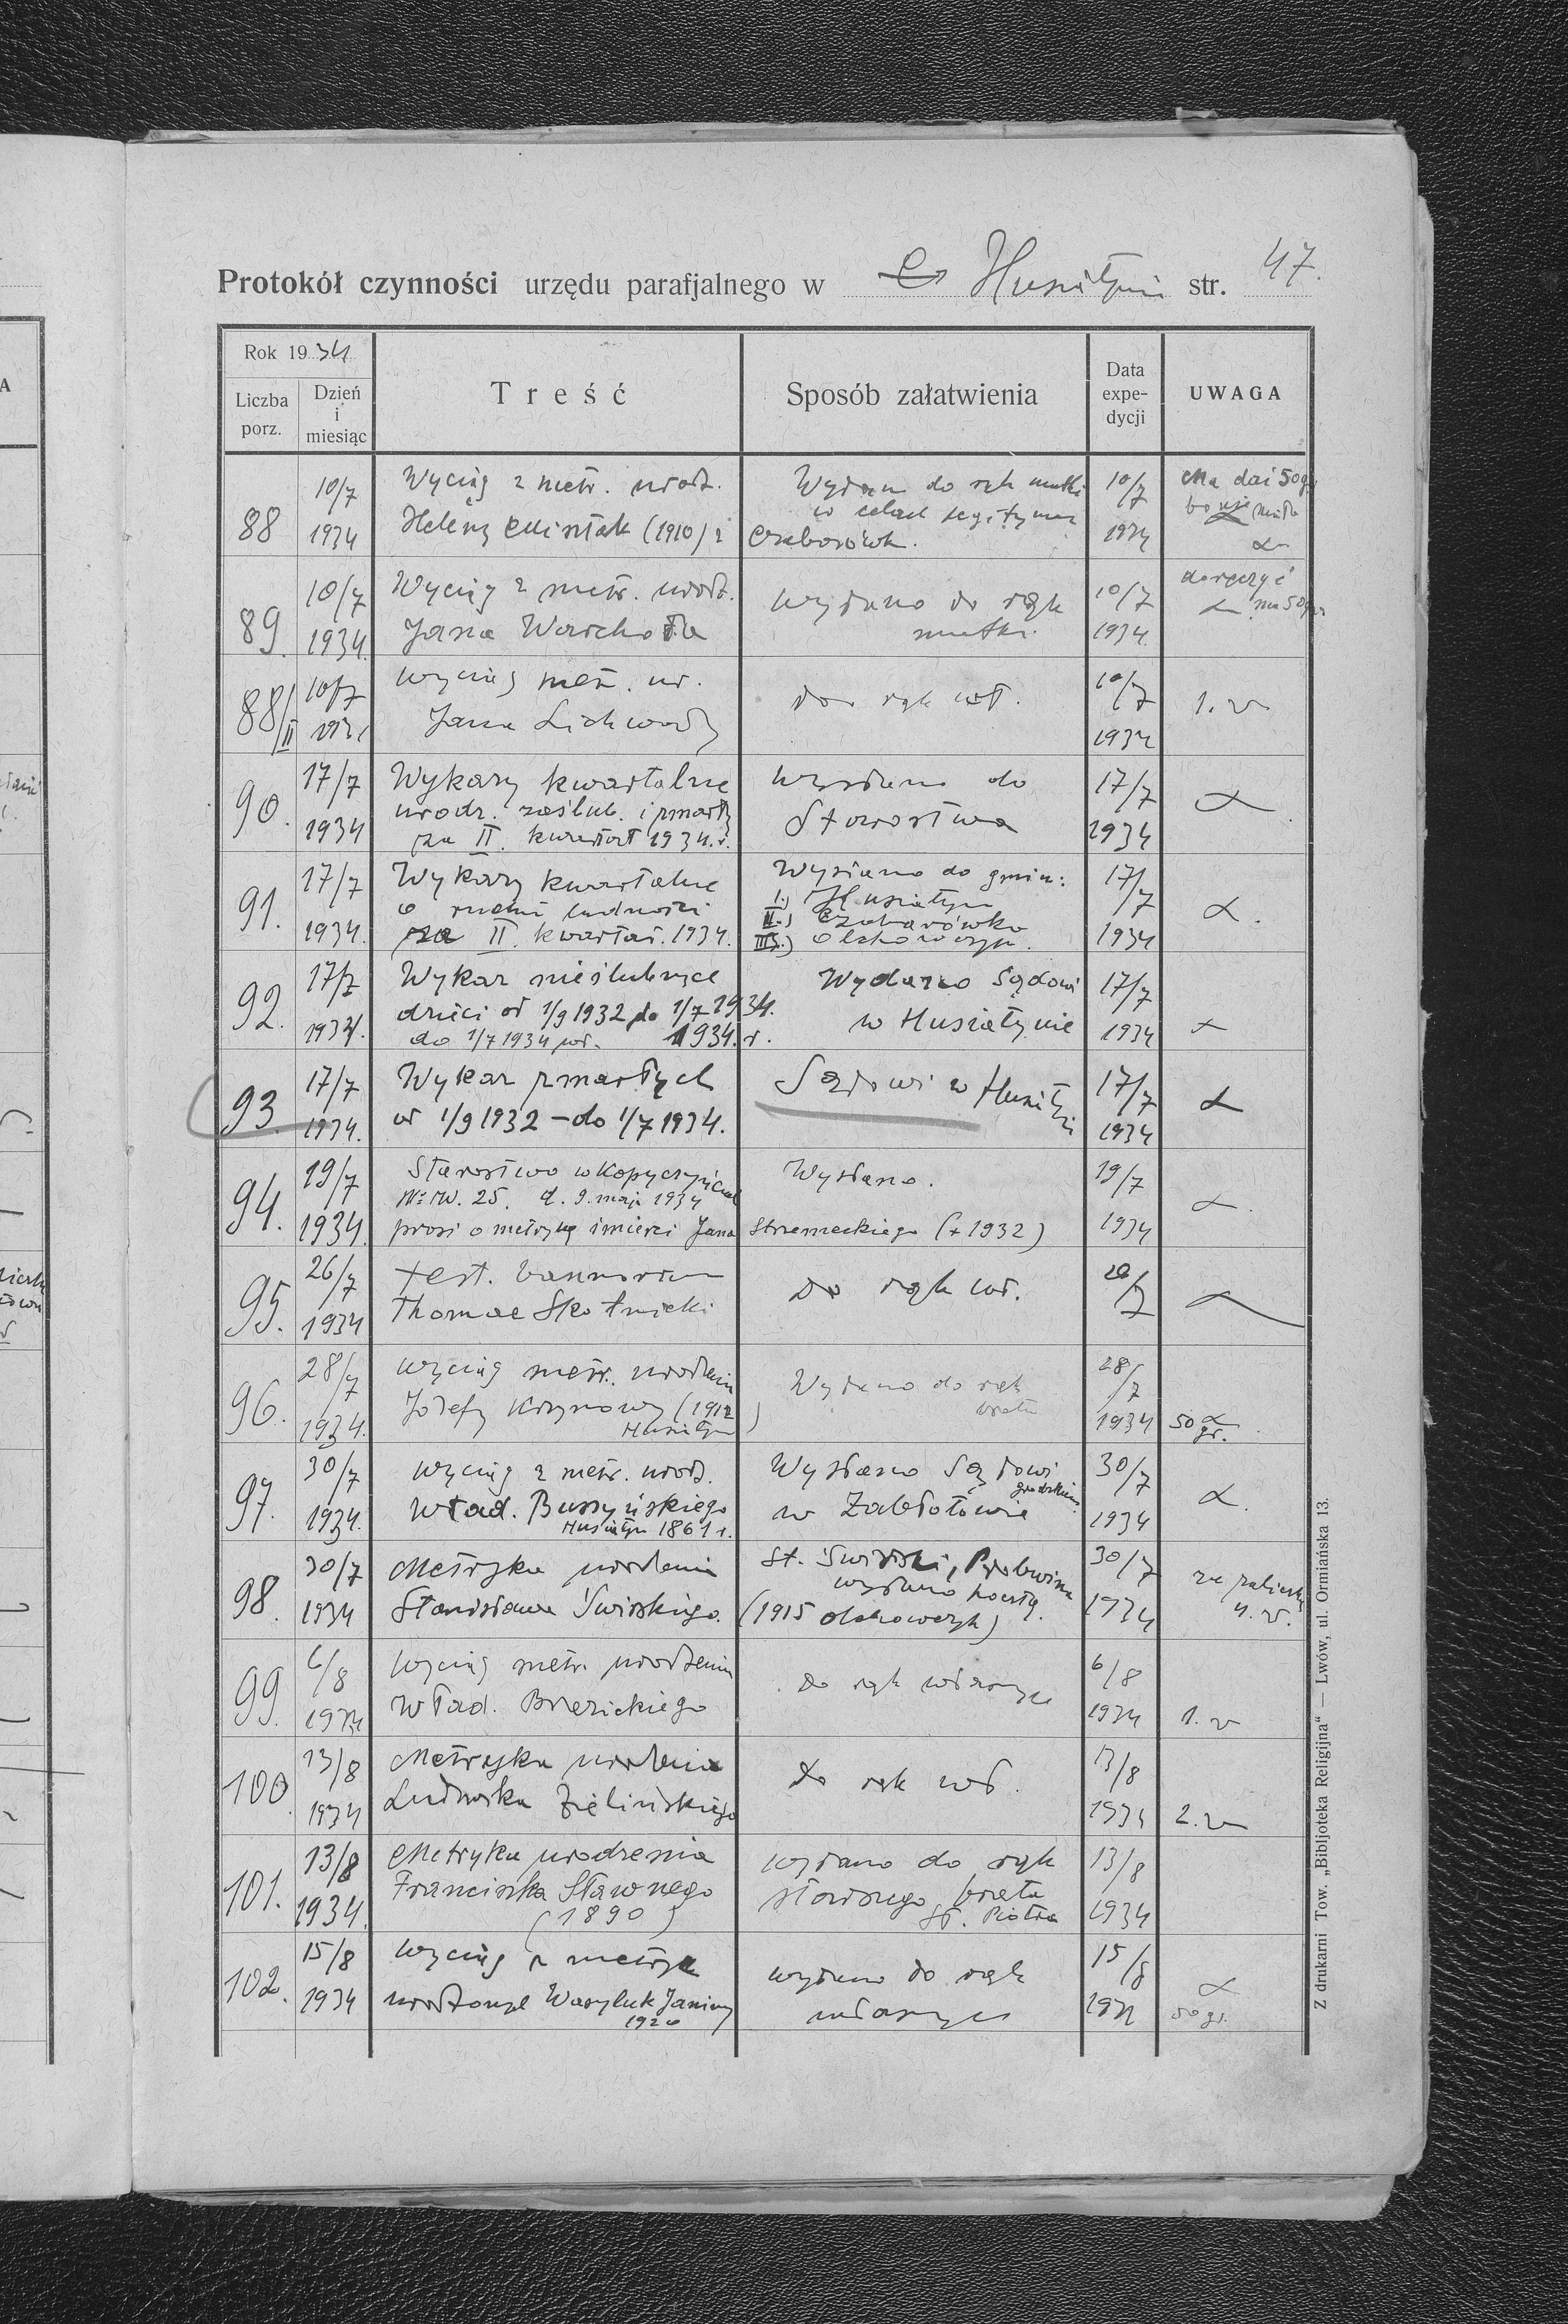 Protokół czynności urzędu parafjalnego w Husiatynie str. 47.
Rok 1934
Liczba porz.
Dzień i miesiąc
Treść
Sposób załatwienia
Data expedycji
UWAGA
88 10/7 1934
Wyciąg z metr. urodz.
Heleny (1910) z
do rąk matki
w celach
10/7 1934
Ma dać 50 gr.
bo nie miała
89. 10/7 1934.
Wyciąg z metr. urodz.
Jana Warchoła
wydano do rąk
matki.
10/7 1934.
doręczyć
88/II 10/7
wyciąg metr. ur.
Jana Lichwody
do rąk wł.
10/7 1934
90. 17/7 1934
Wykazy kwartalne
urodz. zaślub. i zmarły
za II. kwartał 1934. r.
wysłano do
Starostwa
17/7 1934
91. 17/7 1934.
Wykazy kwartalne
o ruchu ludności
za II. kwartał. 1934.
Wysłano do gmin:
I.) Husiatyn
II.) Czabarówka
III.) Olchowczyk.
17/7 1934
92. 17/7 1934.
Wykaz nieślubnych
dzieci od 1/9 1932 do 1/7 1934.
do 1/7 1934 1934. r.
Wydano Sądowi
w Husiatynie
17/7 1934
93. 17/7 1934.
Wykaz zmarłych
od 1/9 1932 – do 1/7 1934.
Sądowi w
17/7 1934
94. 19/7 1934.
Starostwo w
25. d. 9. maja 1934
prosi o metrykę śmierci Jana Strzemeckiego (+ 1932)
Wysłano.
19/7 1934
95. 26/7 1934
Test. bannorum
Thomae Skotnicki
Do rąk wł.
96. 28/7 1934.
wyciąg metr. urodzenia
Józefy (1912
Husiatyn)
Wydano do rąk
brata
28/7 1934
50 gr.
97. 30/7 1934.
wyciąg z metr. urodz.
Wład. Buszyńskiego
Husiatyn 1861 r.
Wysłano Sądowi
grodzkiemu
w Zabłotowie
30/7 1934
98. 30/7 1934
Metryka urodzenia
Stanisława Świrskiego.
St. Świrski,
wysłano pocztą.
(1915 Olchowczyk)
30/7 1934
99. 6/8 1934
wyciąg metr. urodzenia
Wład. Brzezickiego
Do rąk własnych
6/8 1934
100 13/8 1934
Metryka urodzenia
Ludwika Zielińskiego
do rąk wł.
13/8 1934
101. 13/8 1934.
Metryka urodzenia
Franciszka Sławnego
(1890)
wydano do rąk
starszego brata
Piotra
13/8 1934
102. 15/8 1934
wyciąg z metryk
urodzonych Wasyluk Janiny
wydano do rąk
własnych
15/8
50 gr.
Z drukarni Tow. „Bibljoteka Religijna" — Lwów, ul. Ormiańska 13.